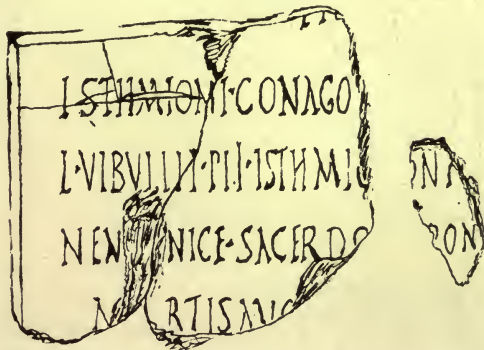 ISTHMIONI·CONAGO
L·VIBVLLII·PII·ISTHMIO ON
NEN NICE·SACERDO RON
M RTISAVG